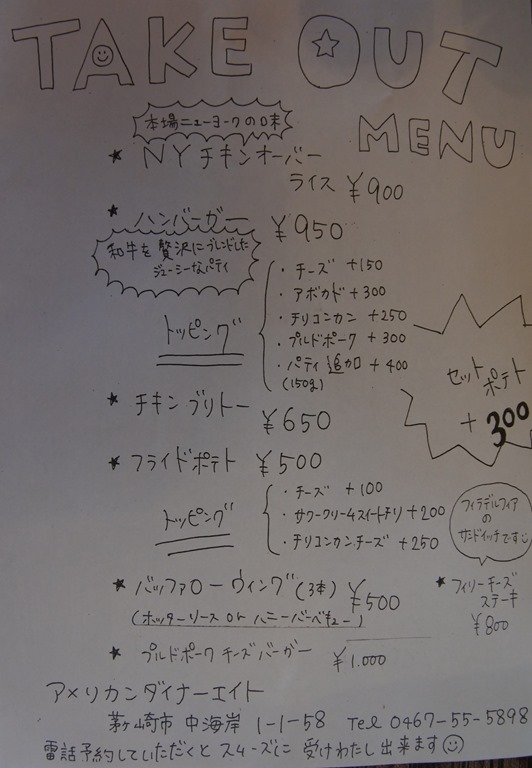 TAKE OUT
MENU
本場ニューヨークの味
★ NYチキンオーバー
ライス ¥900
★ ハンバーガー ¥950
和牛を贅沢にブレンドした
ジューシーなパティ
トッピング
・チーズ +150
・アボカド +300
・チリコンカン +250
・プルドポーク +300
・パティ追加 +400
(150g)
セットポテト
+300
★ チキンブリトー ¥650
★ フライドポテト ¥500
トッピング
・チーズ +100
・サワークリーム&スイートチリ +200
・チリコンカンチーズ +250
フィラデルフィア
の
サンドイッチです
★ フィリーチーズ
ステーキ
¥800
★ バッファローウィング(3本) ¥500
(ホッターソース or ハニーバーベキュー)
★ プルドポークチーズバーガー ¥1.000
アメリカンダイナーエイト
茅ヶ崎市 中海岸 1-1-58 Tel 0467-55-5898
電話予約していただくとスムーズに受けわたし出来ます